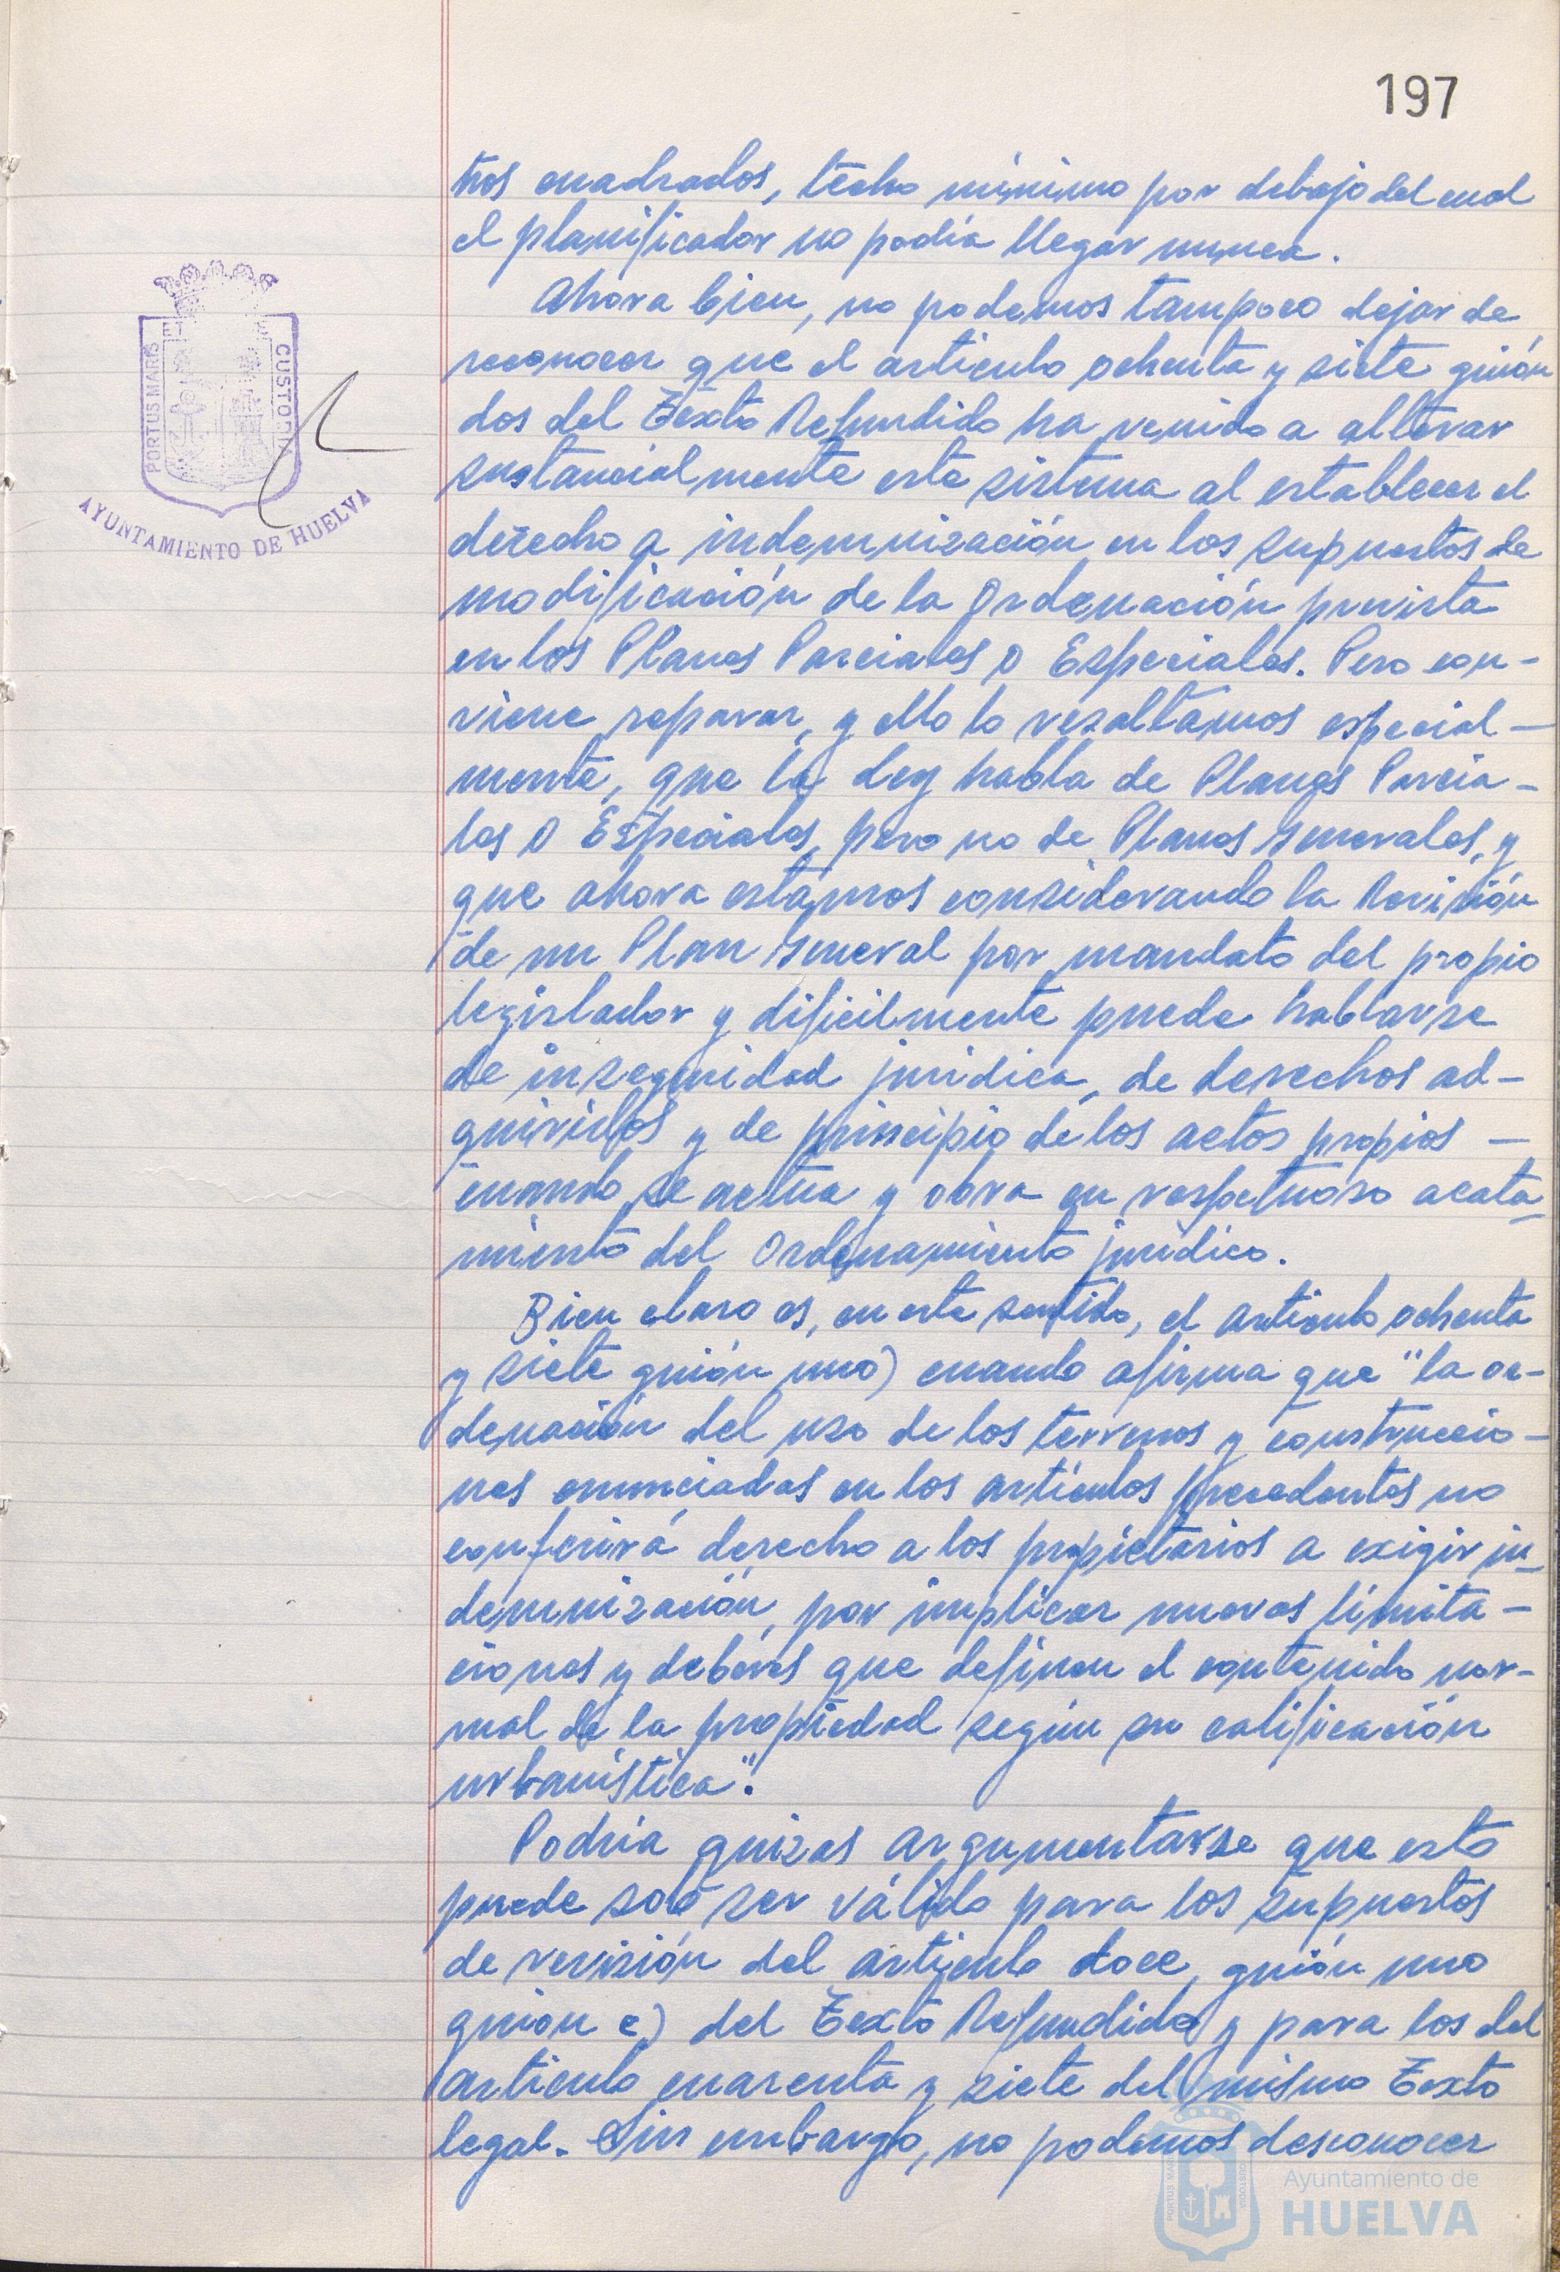 197
tros cuadrados, techo mínimo por debajo del cual
el planificador no podía llegar nunca.
Ahora bien, no podemos tampoco dejar de
reconocer que el artículo ochenta y siete guión
dos del Texto Refundido ha venido a alterar
sustancialmente este sistema al establecer el
derecho a indemnización en los supuestos de
modificación de la Ordenación prevista
en los Planes Parciales o Especiales. Pero con-
viene reparar, y ello lo resaltamos especial-
mente, que la Ley habla de Planes Parcia-
les o Especiales, pero no de Planes Generales, y
que ahora estamos considerando la Revisión
de un Plan General por mandato del propio
legislador y dificilmente puede hablarse
de inseguridad jurídica, de derechos ad-
quiridos y de principio de los actos propios -
cuando se actúa y obra en respetuoso acata-
miento del Ordenamiento jurídico.
Bien claro es, en este sentido, el artículo ochenta
y siete guión uno) cuando afirma que "la or-
denación del uso de los terrenos y construccio-
nes enunciadas en los artículos precedentes no
conferirá derecho a los propietarios a exigir in-
demnización, por implicar nuevas limita-
ciones y deberes que definen el contenido nor-
mal de la propiedad según su calificación
urbanística".
Podría quizas argumentarse que esto
puede solo ser válido para los supuestos
de revisión del artículo doce, guión uno
guión e) del Texto Refundido y para los del
artículo cuarenta y siete del mismo Texto
legal. Sin embargo, no podemos desconocer
PORTUS MARIS
CUSTODIA
AYUNTAMIENTO DE HUELVA
Ayuntamiento de
HUELVA